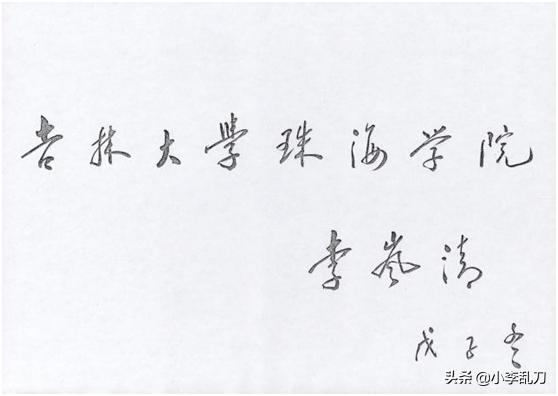 吉林大學珠海学院
李岚清
戊子冬
头条 @小李乱刀